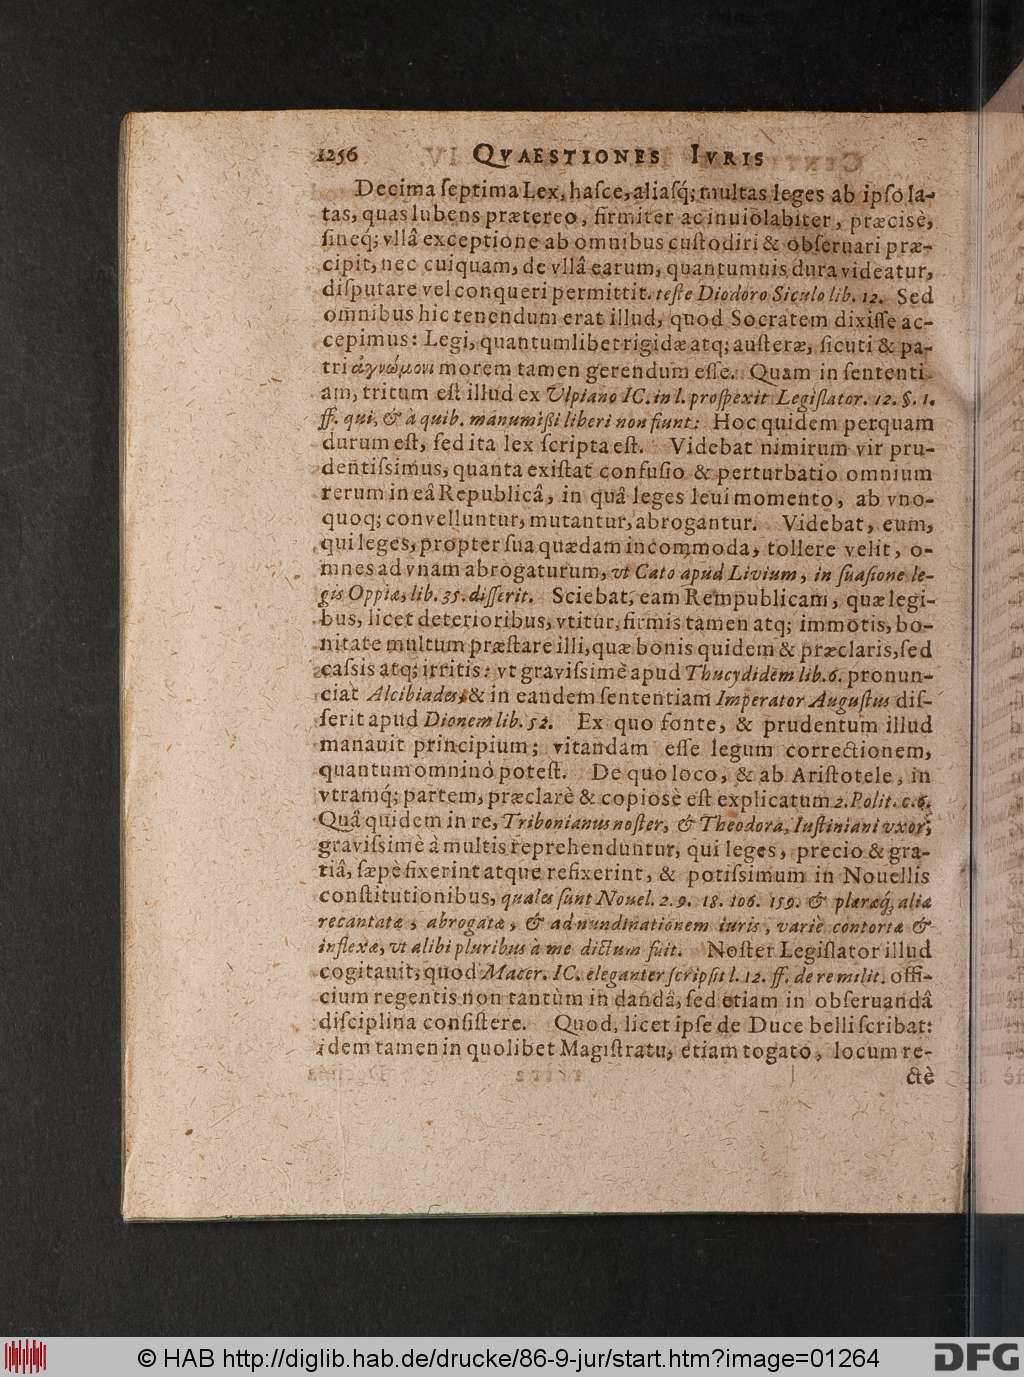 1256 QVAESTIONES IVRIS
Decima ſeptima Lex, haſce, aliaſq́; multas leges ab ipſo la-
tas, quas lubens prætereo, firmiter ac inuiolabiter, præcisè,
ſineq́; vllâ exceptione ab omnibus cuſtodiri & obſeruari præ-
cipit, nec cuiquam, de vllâ earum, quantumuis dura videatur,
diſputare vel conqueri permittit. teſte Diodoro Siculo lib. 12. Sed
omnibus hic tenendum erat illud, quod Socratem dixiſſe ac-
cepimus: Legi, quantumlibet rigidæ atq; auſteræ, ſicuti & pa-
tri ἀγνώμονι morem tamen gerendum eſſe. Quam in ſententi-
am, tritum eſt illud ex Vlpiano IC. in l. proſpexit Legiſlator. 12. §. 1.
ff. qui, & à quib. manumißi liberi non fiunt: Hoc quidem perquam
durum eſt, ſed ita lex ſcripta eſt. Videbat nimirum vir pru-
dentiſsimus, quanta exiſtat confuſio & perturbatio omnium
rerum in eâ Republicâ, in quâ leges leui momento, ab vno-
quoq; convelluntur, mutantur, abrogantur. Videbat, eum,
qui leges, propter ſua quædam incommoda, tollere velit, o-
mnes ad vnam abrogaturum, vt Cato apud Livium, in ſuaſione le-
gis Oppiæ, lib. 35. diſſerit. Sciebat, eam Rempublicam, quæ legi-
bus, licet deterioribus, vtitur, firmis tamen atq; immotis, bo-
nitate multum præſtare illi, quæ bonis quidem & præclaris, ſed
caſsis atq; irritis: vt graviſsimè apud Thucydidem lib. 6. pronun-
ciat Alcibiades, & in eandem ſententiam Imperator Auguſtus diſ-
ſerit apud Dionem lib. 52. Ex quo fonte, & prudentum illud
manauit principium; vitandam eſſe legum correctionem,
quantum omninò poteſt. De quo loco, & ab Ariſtotele, in
vtramq́; partem, præclarè & copiosè eſt explicatum 2. Polit. c. 6.
Quâ quidem in re, Tribonianus noſter, & Theodora, Iuſtiniani vxor,
graviſsimè à multis reprehenduntur, qui leges, precio & gra-
tiâ, ſæpè fixerint atque refixerint, & potiſsimum in Nouellis
conſtitutionibus, quales ſunt Nouel. 2. 9. 18. 106. 159. & pleræq́, aliæ
recantatæ, abrogatæ, & ad nundinationem iuris, variè contortæ &
inflexæ, vt alibi pluribus à me dictum fuit. Noſter Legiſlator illud
cogitauit, quod Macer. IC. eleganter ſcripſit l. 12. ff. de re milit. offi-
cium regentis non tantùm in dandâ, ſed etiam in obſeruandâ
diſciplina conſiſtere. Quod, licet ipſe de Duce belli ſcribat:
idem tamen in quolibet Magiſtratu, etiam togato, locum re-
ctè
© HAB http://diglib.hab.de/drucke/86-9-jur/start.htm?image=01264 DFG